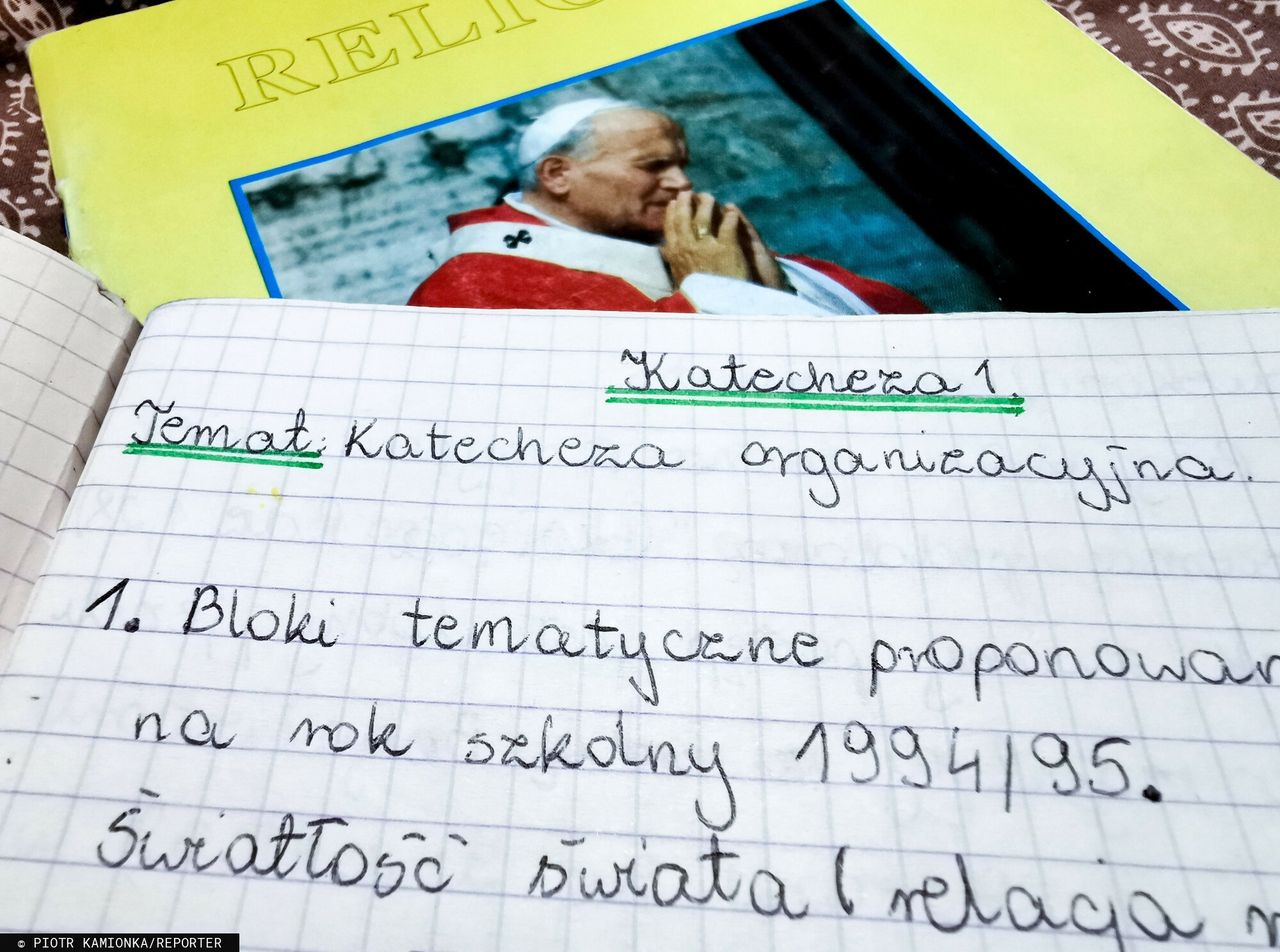 RELIG
Katecheza 1.
Temat: Katecheza organizacyjna.
1. Bloki tematyczne proponowan
na rok szkolny 1994/95.
Światłość świata ( relacja
© PIOTR KAMIONKA/REPORTER